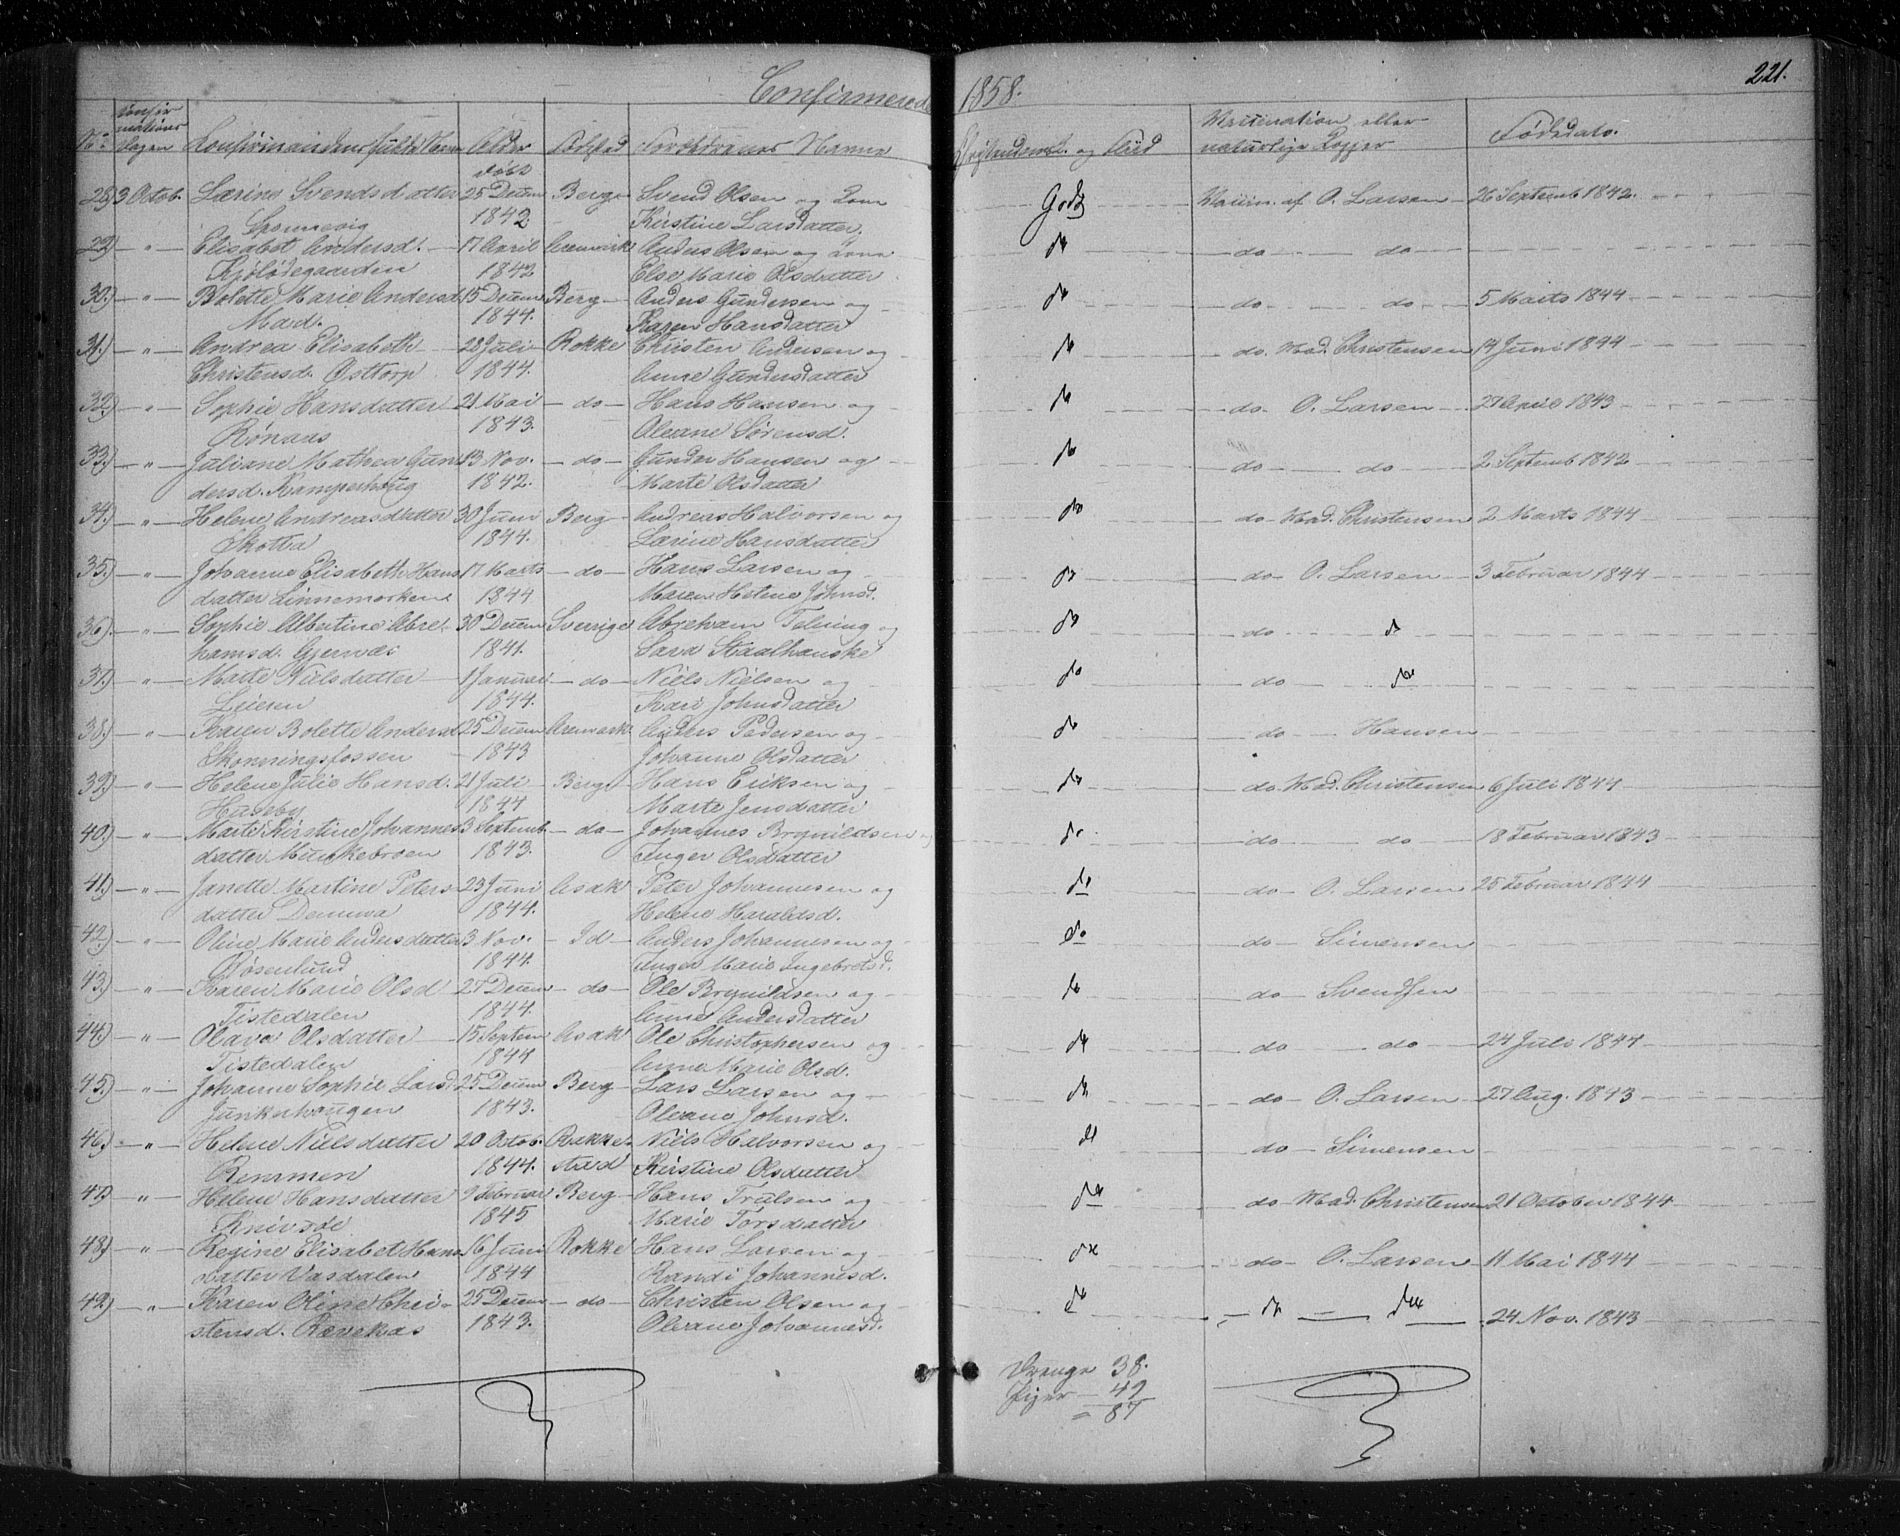 Confirmerede 1858. 221.
No Confirmationsdagen Confirmandens fulde Navn Alder Fødested Forældrenes Navne og Flid Vaccination eller naturlige Kopper
født
28) 3 Octob. Larine Svendsdatter 25 Decem Berg Svend Olsen og Kone Godt Vaccin. af O. Larsen 26 Septemb 1842.
Sponnevig 1842 Kirstine Larsdatter.
29) " Elisabet Andersd. 17 April Aremark Anders Olsen og Kone do do do
1842 Else Marie Olsdatter
30.) " Bolette Marie Andersd. 15 Decem Berg Anders Gundersen og do do do 5 Marts 1844
1844. Karen Hansdatter
31.) " Andrea Elisabeth 28 Juli Rokke Christen Andersen og do do. Mad. Christensen 14 Juni 1844
Christensd. Osttorp 1844. Anne Gundersdatter
32.) " Sophie Hansdatter 21 Mai do Hans Hansen og do do O. Larsen 27 April 1843
1843. Oleane Sørensd.
33.) " Juliane Mathea Gun 13 Nov. do Gunder Hansen og do do do 2 Septemb 1842
dersd. Kamperhaug 1842. Marte Olsdatter
34.) " Helene Andreasdatter 30 Juni Berg Andreas Halvorsen og do do Mad. Christensen 2 Marts 1844
Skotta 1844. Larine Hansdatter
35.) " Johanne Elisabeth Hans 17 Marts do Hans Larsen og do do O. Larsen 3 Februar 1844
datter Linnemarken 1844 Maren Helene Johnsd.
36.) " Sophie Albertine Abra 30 Decem Sverige Abraham og do do do
hamsd. 1841. Sara Staalhanske
37.) " Marte Nielsdatter 1 Januar do Niels Nielsen og do do do
1844. Kari Johnsdatter
38.) " Karen Bolette Andersd 25 Decem Aremark Anders Pedersen og do do Hansen
Skonningsfossen 1843 Johanne Olsdatter
39.) " Helene Julie Hansd. 21 Juli Berg Hans Eriksen og do do Mad. Christensen 6 Juli 1844
Huseby 1844 Marte Jensdatter
40.) " Marte Kirstine Johannes 3 Septemb do Johannes Brynildsen og do do do 18 Februar 1843
datter Munkebroen 1843. Inger Olsdatter
41.) " Janette Martine Peters 23 Juni Asak Peter Johannesen og do do O. Larsen 25 Februar 1844
datter 1844. Helene Haraldsd.
42.) " Oline Marie Andersdatter 3 Nov. Id Anders Johannesen og do do Simensen
Rosenlund 1844. Inger Marie Ingebretsd.
43.) " Karen Marie Olsd 27 Decem do Ole Brynildsen og do do Svendsen
Tistedalen 1844. Anne Andersdatter
44.) " Olava Olsdatter 15 Septem Asak Ole Christophersen og do do do 24 Juli 1844
Tistedalen 1844 Anne Marie Olsd.
45.) " Johanne Sophie Larsd 25 Decem Berg Lars Larsen og do do O. Larsen 27 Aug. 1843
Junkerhaugen 1843. Oleane Johnsd.
46.) " Helene Nielsdatter 20 Octob. Rakke Niels Halvorsen og do do Simensen
Remmen 1844. stad Kirstine Olsdatter
47.) " Helene Hansdatter 9 Februar Berg Hans Trulsen og do do Mad. Christensen 21 October 1844
Knivsøe 1845 Marie Torsdatter
48.) " Regine Elisabet Hans 16 Juni Rokke Hans Larsen og do do O. Larsen 11 Mai 1844
datter Vasdalen 1844 Randi Johannesd.
49.) " Karen Oline Chri 25 Decem do Christen Olsen og do do do 24 Nov. 1843
stensd. Rævekas 1843. Oleane Johannesd.
Drenge 38.
Piger 49
= 87